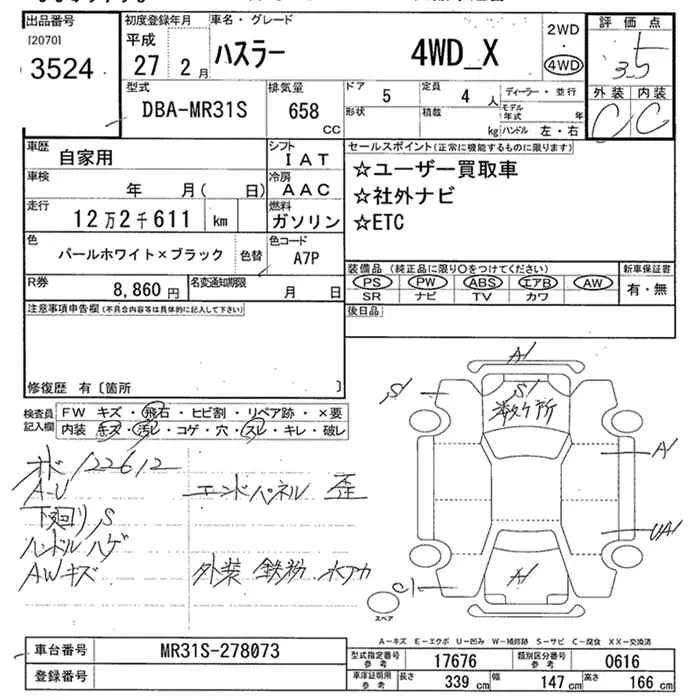 出品番号 初度登録年月 車名・グレード 2WD 評価点
[2070] 平成 ハスラー 4WD_X ・ 3.5
3524 27 2月 4WD 外装 内装
型式 排気量 ドア 5 定員 4人 ディーラー・並行 C C
DBA-MR31S 658 cc 形状 積載 kg モデル年式 年
ハンドル 左・右
車歴 自家用 シフト IAT セールスポイント(正常に機能するものに限ります)
車検 年 月( 日) 冷房 AAC ☆ユーザー買取車
走行 12万2千611 km 燃料 ガソリン ☆社外ナビ
☆ETC
色 パールホワイト×ブラック 色替 色コード A7P
装備品(純正品に限り〇をつけてください) 新車保証書
R券 8,860円 名変通知期限 月 日 PS PW ABS エアB AW 有・無
SR ナビ TV カワ
注意事項申告欄(不具合内容等は具体的に記入して下さい) 後日品
修復歴 有〔箇所 〕
検査員記入欄 FW キズ・飛石・ヒビ割・リペア跡・×要
内装 キズ・汚レ・コゲ・穴・スレ・キレ・破レ
A1
S1 S1
数ヶ所
A1
UA1
A1
C1
スペア
122612
A-U エンドパネル 歪
下廻り S
ハンドル ハゲ
AWキズ 外装 鉄粉 水アカ
A-キズ E-エクボ U-凹み W-補修跡 S-サビ C-腐食 XX-交換済
車台番号 MR31S-278073 型式指定番号 参考 17676 類別区分番号 参考 0616
登録番号 車庫証明用 参考 長さ 339cm 幅 147cm 高さ 166cm